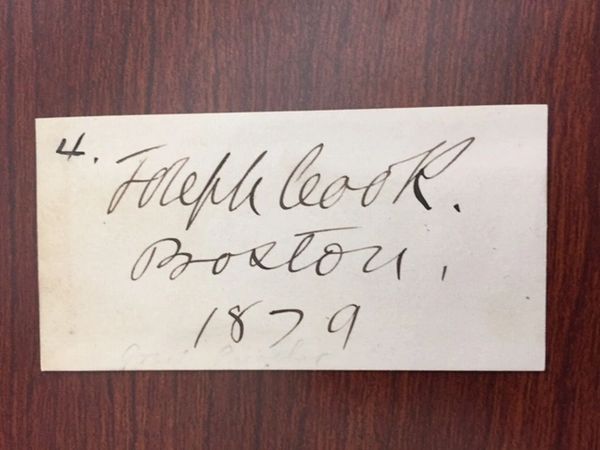 4.
Joseph Cook.
Boston,
1879